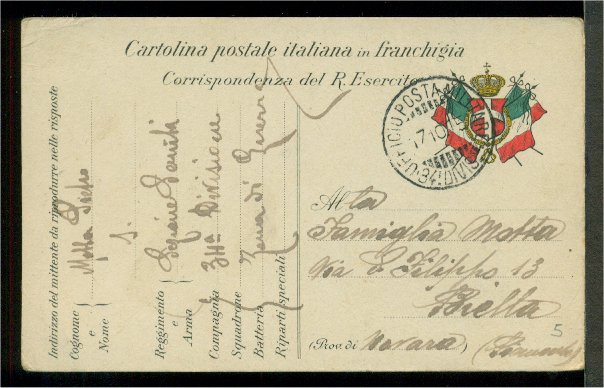 Cartolina postale italiana in franchigia
Corrispondenza del R. Esercito
UFFICIO POSTA MILITARE
34ª DIVISIONE
17.10.15
Indirizzo del mittente da riprodurre nelle risposte
Cognome e Nome
Motta Pietro
Reggimento e Arma
Compagnia
34ª Divisione
Squadrone
Batteria
Zona di Guerra
Riparti speciali
Alla
Famiglia Motta
Via S. Filippo 13
Biella
(Prov. di Novara (Piemonte)
5